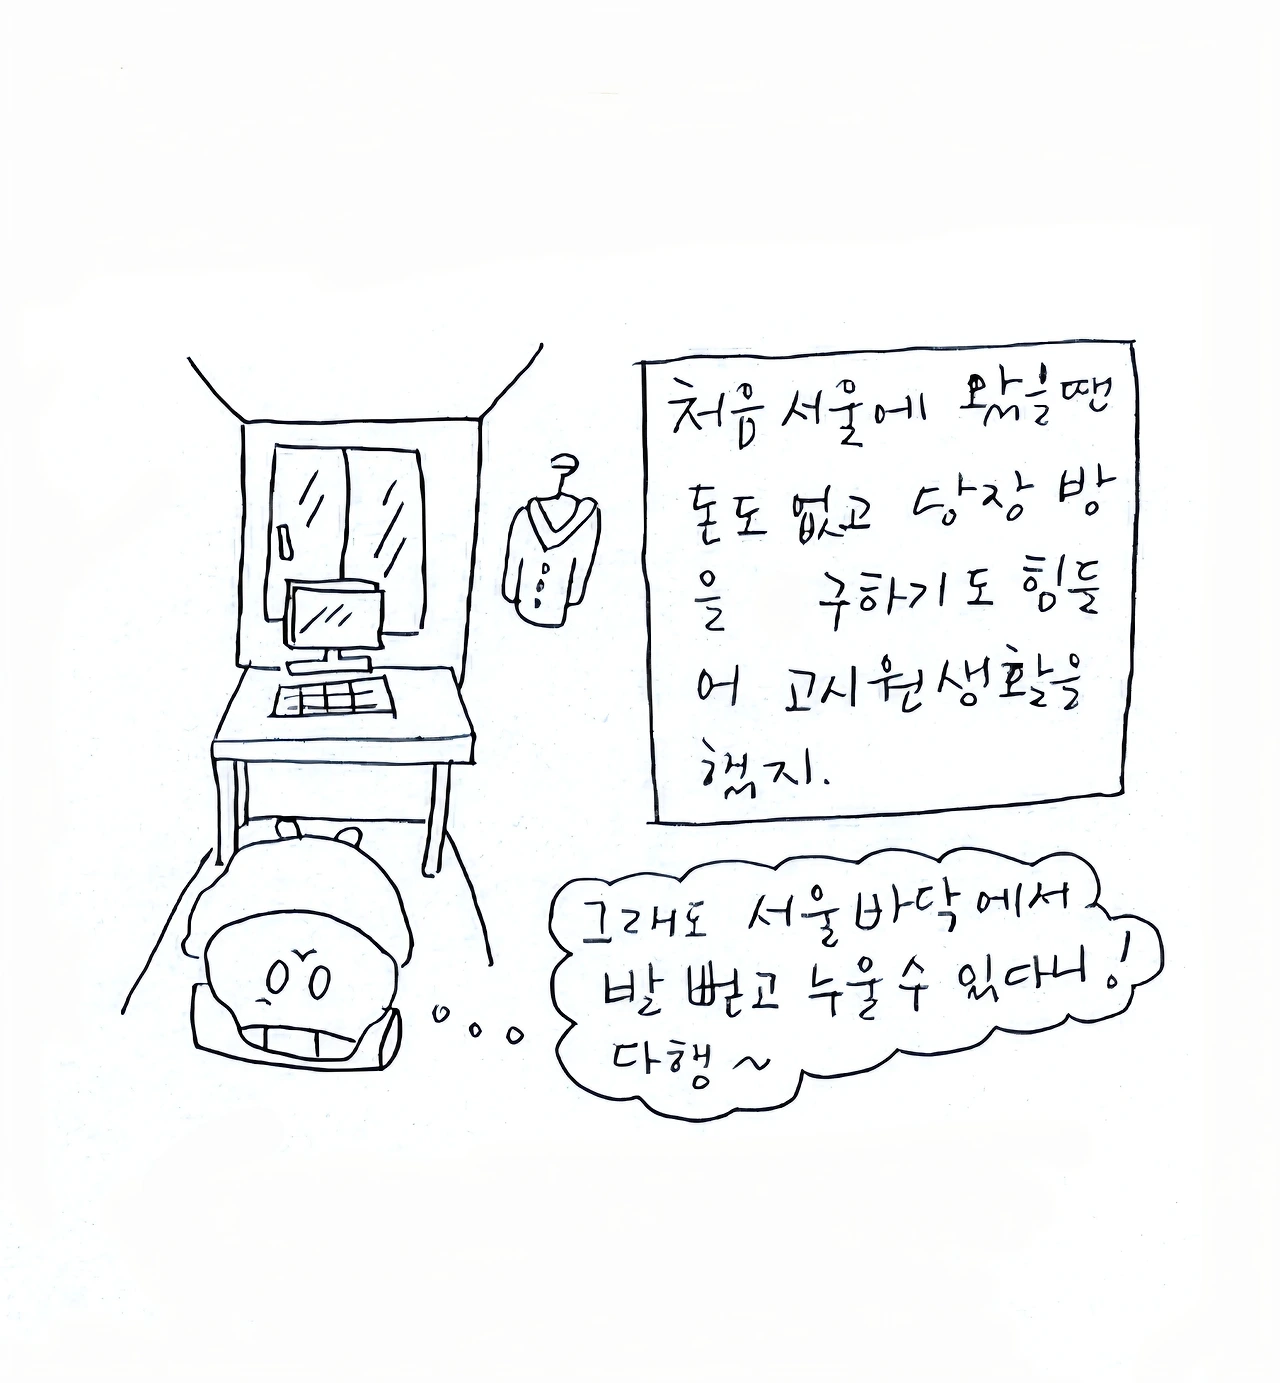 처음 서울에 왔을땐
돈도 없고 당장 방
을 구하기도 힘들
어 고시원생활을
했지.
그래도 서울바닥에서
발 뻗고 누울수 있다니!
다행~